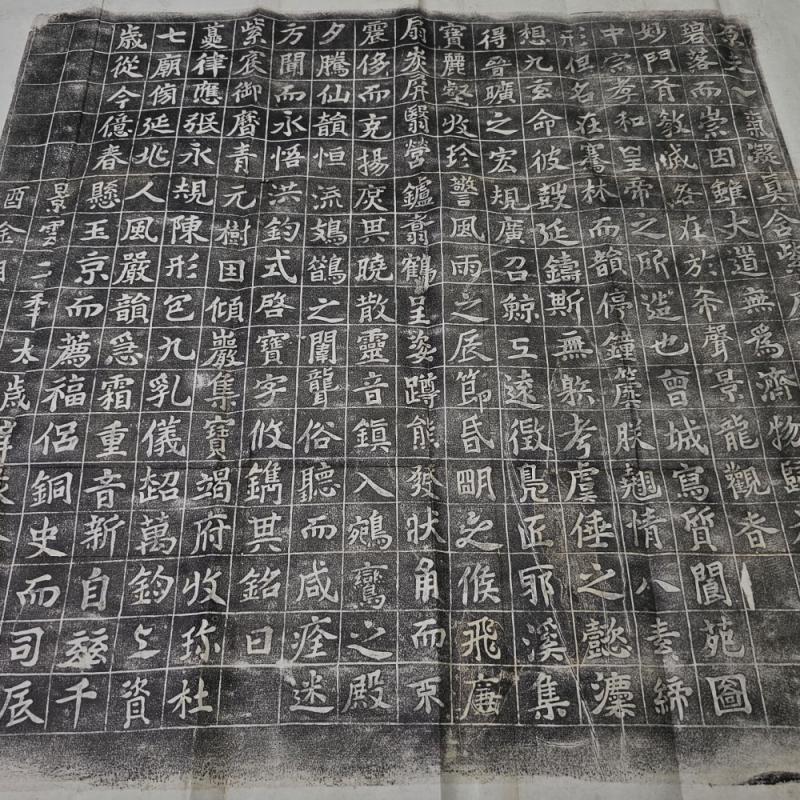 原夫一氣凝真含紫
碧落而崇因雖大道無為濟物歸
妙門有教滅咎在於希聲景龍觀者
中宗孝和皇帝之所造也曾城寫質閬苑圖
形但名在騫林而韻停鐘簴朕翹情八素締
想九玄命彼鼓延鑄斯無射考虞倕之懿濾
得晉曠之宏規廣召鯨工遠徵鳧匠耶溪集
寶麗壑收珍警風雨之辰節昏明之候飛廉
扇炭屏翳營鑪翥鶴呈姿蹲熊發狀角而不
震侈而克揚庶其曉散靈音鎮入鵷鸞之殿
夕騰仙韻恒流鳷鵲之闈聾俗聽而咸痊迷
方聞而永悟洪鈞式啓寶字攸鐫其銘曰
紫宸御曆青元樹因傾巖集寶竭府收珎杜
夔律應張永規陳形包九乳儀超萬鈞上資
七廟傍延兆人風嚴韻急霜重音新自茲千
歲從今億春懸玉京而薦福侶銅史而司辰
景雲二年太歲辛
酉金